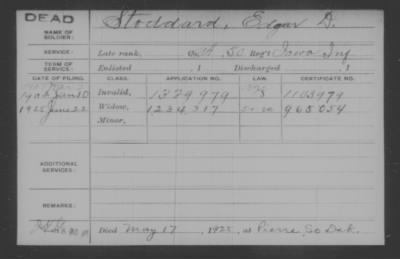 DEAD
NAME OF SOLDIER: Stoddard, Edgar D.
SERVICE: Late rank, Co. 50 Reg't Iowa Inf
TERM OF SERVICE: Enlisted , 1 Discharged , 1
DATE OF FILING. CLASS. APPLICATION NO. LAW. CERTIFICATE NO.
Jan 10 Invalid, 1379979 1103979
1925 June 22 Widow, 1234317 965054
Minor,
ADDITIONAL SERVICES:
REMARKS:
Died May 17, 1925, at Pierre, So Dak.